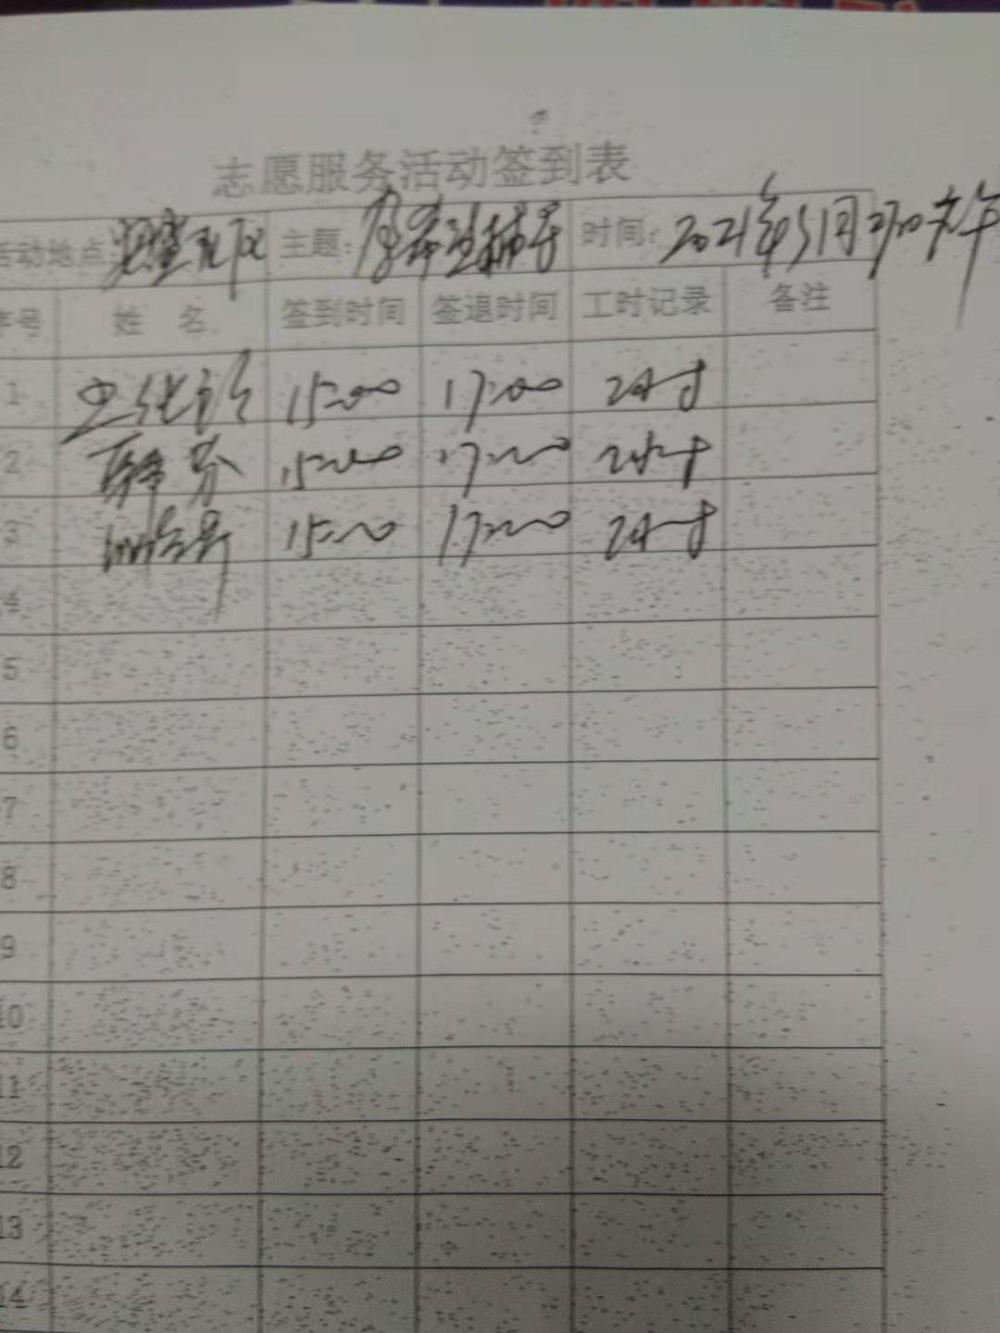 志愿服务活动签到表
活动地点: 主题: 辅导 时间: 2021年5月27日下午
序号 姓 名 签到时间 签退时间 工时记录 备注
1 15:00 17:00 2小时
2 15:00 17:00 2小时
3 15:00 17:00 2小时
4
5
6
7
8
9
10
11
12
13
14